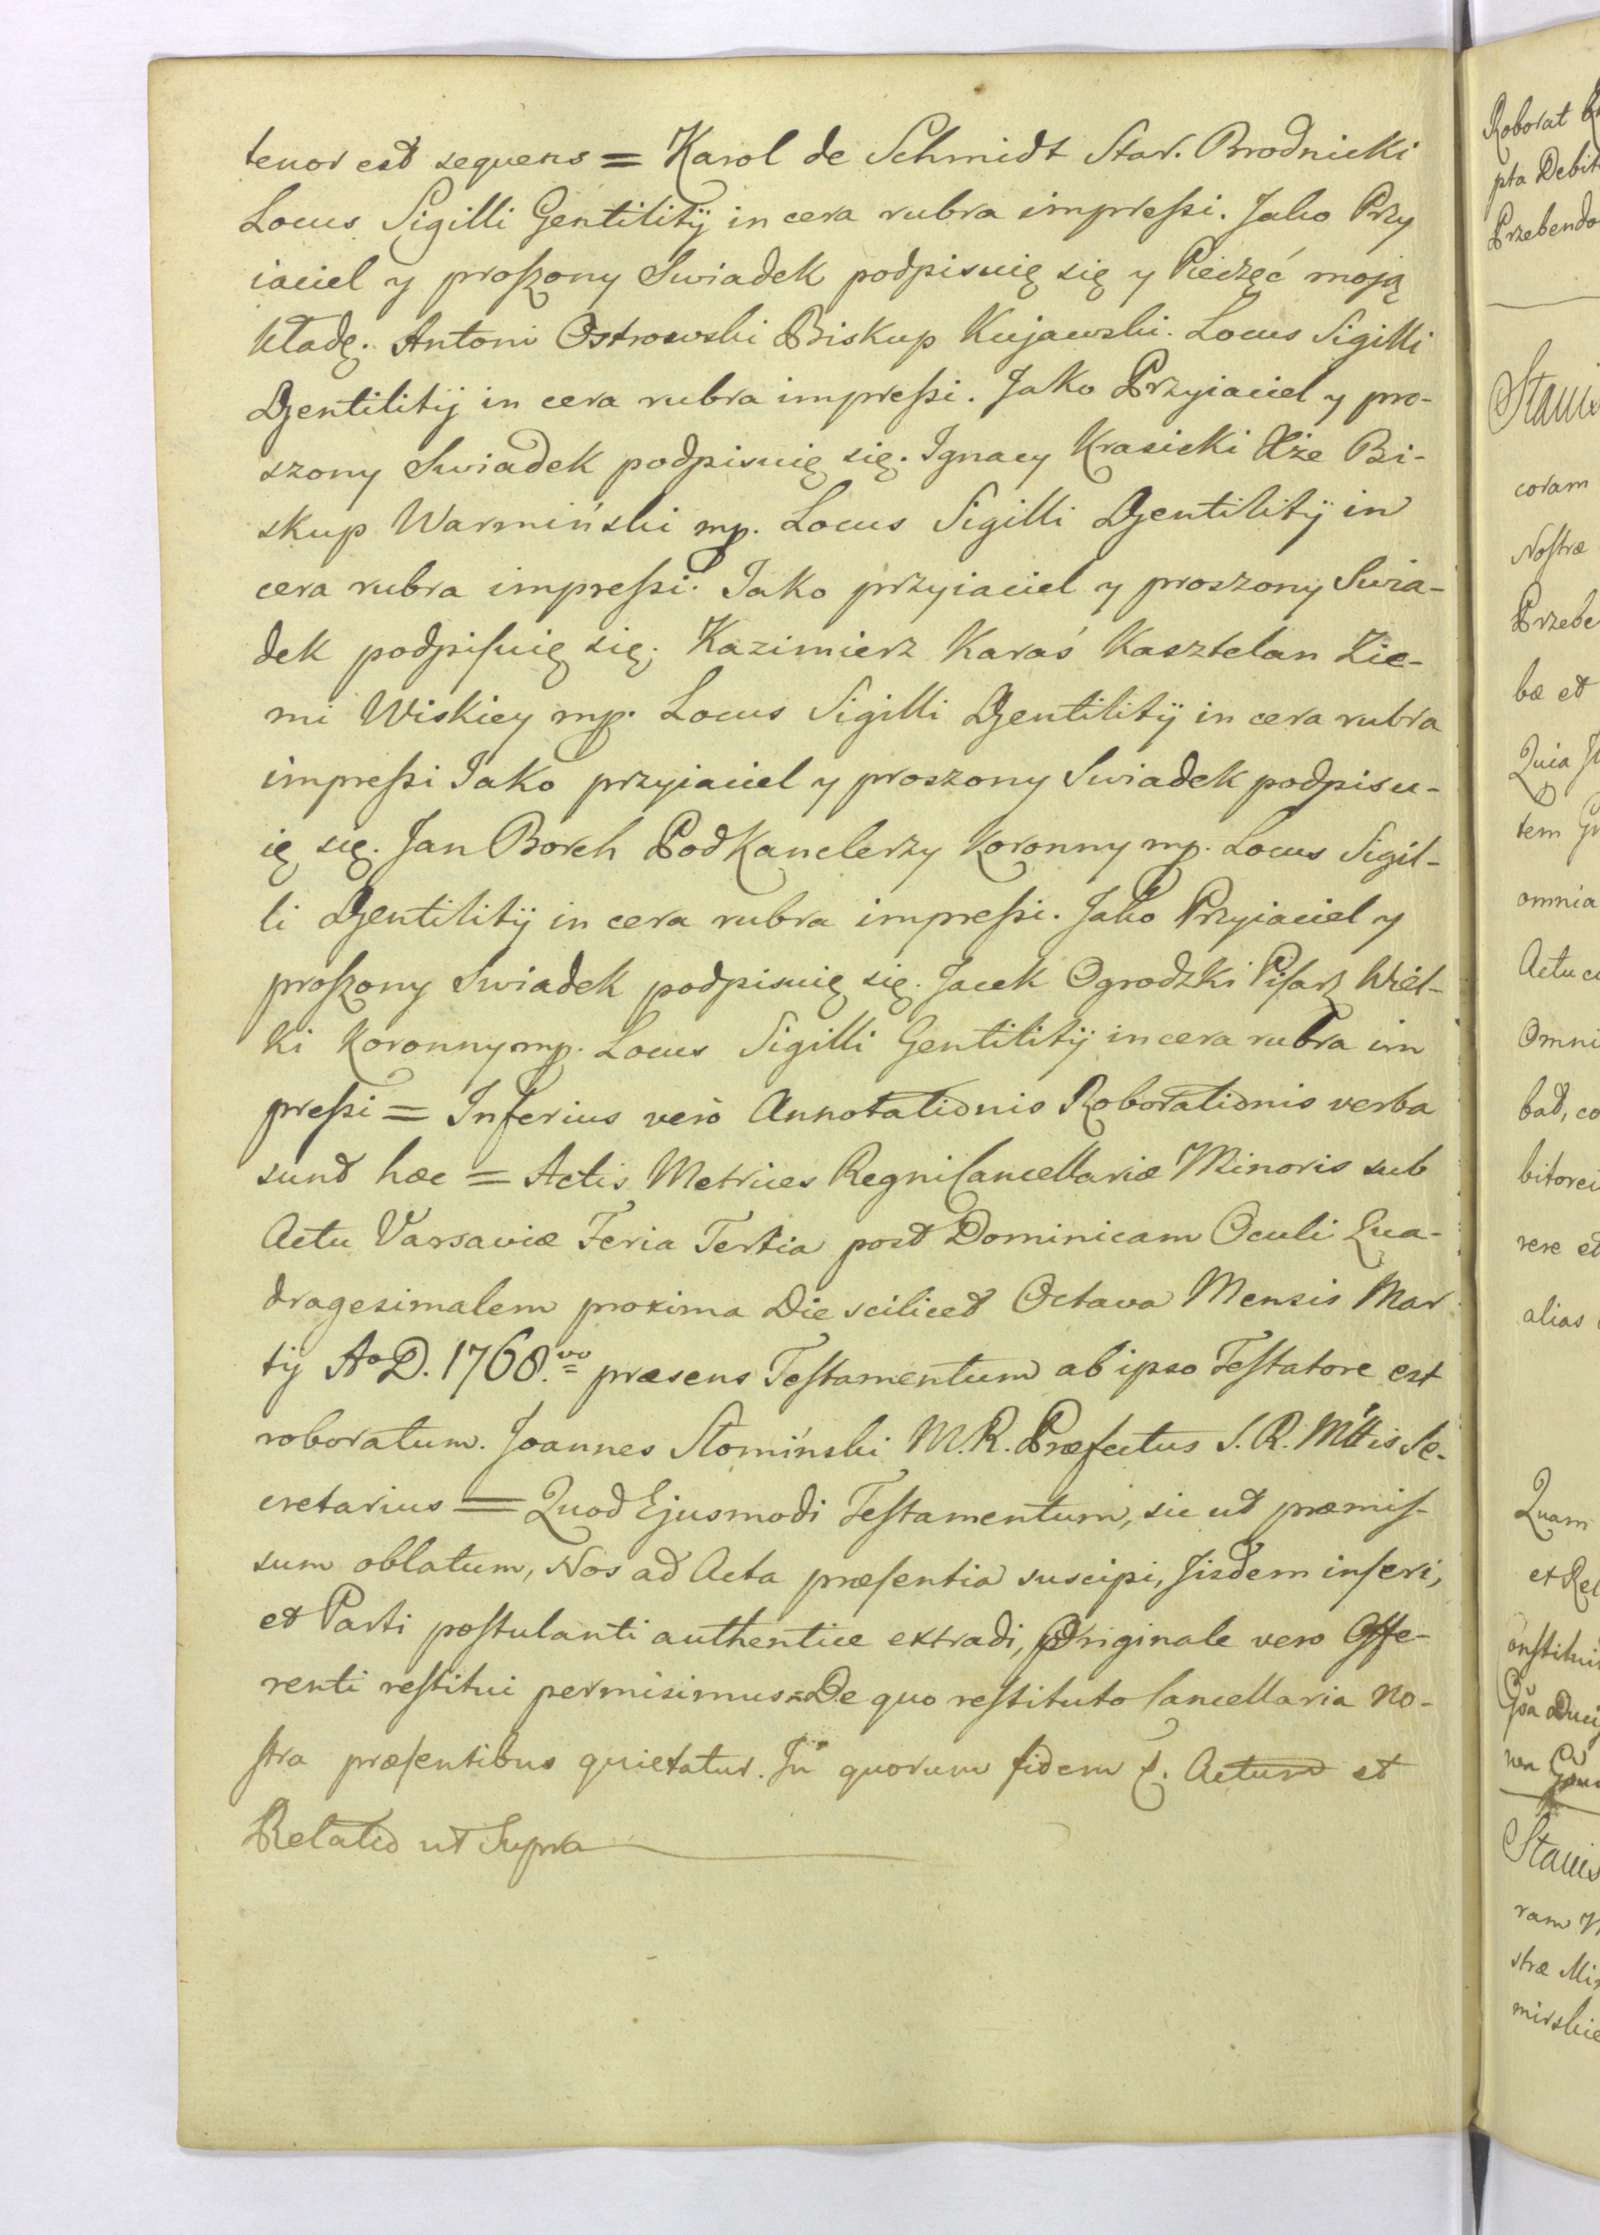 tenor est sequens = Karol de Schmidt Star. Brodnicki
Locus Sigilli Gentilitij in cera rubra impreſsi. Jako Przy
iaciel y proſzony Swiadek podpisuię się y Pieczęć moją
kładę. Antoni Ostrowski Biskup Kujawski. Locus Sigilli
Gentilitij in cera rubra impreſsi. Jako Przyiaciel y pro-
szony Swiadek podpisuię się. Ignacy Krasicki Xże Bi-
skup Warmiński mp. Locus Sigilli Gentilitij in
cera rubra impreſsi. Jako przyiaciel y proszony Swia-
dek podpiſuię się. Kazimierz Karaś Kasztelan Zie-
mi Wiskiey mp. Locus Sigilli Gentilitij in cera rubra
impreſsi Jako przyiaciel y proszony Swiadek podpisu-
ię się. Jan Borch PodKanclerzy Koronny mp. Locus Sigil-
li Gentilitij in cera rubra impreſsi. Jako Przyiaciel y
proſzony Swiadek podpisuię się. Jacek Ogrodzki Piſarz Wiel-
ki Koronny mp. Locus Sigilli Gentilitij in cera rubra im
preſsi = Inferius verò Annotationis Roborationis verba
sunt hæc = Actis Metrices Regni Cancellariæ Minoris sub
Actu Varsaviæ Feria Tertia post Dominicam Oculi Qua-
dragesimalem proxima Die scilicet Octava Mensis Mar
tij Aº D. 1768.vo præsens Teſtamentum ab ipso Teſtatore est
roboratum. Joannes Słomiński M.R. Præfectus S.R. Mttis Se-
cretarius = Quod Ejusmodi Teſtamentum, sic ut præmiſ-
sum oblatum, Nos ad Acta præſentia suscipi, Jisdem inſeri,
et Parti poſtulanti authentice extradi, Originale vero Offe-
renti reſtitui permisimus = De quo reſtituto Cancellaria no-
ſtra præſentibus quietatur. In quorum fidem &. Actum et
Relatio ut Supra
Roborat
pta Debit
Przebendo
Stanis
coram
Noſtræ
Przebe
bæ et
Quia
tem
omnia
Actu
Omni
bat, co
bitorei
rere et
alias
Quam
et Rel
onſtitui
Stanis
ram
stræ Min
mirskie